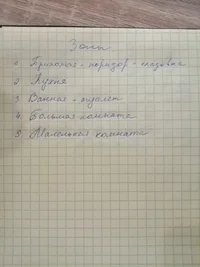 Зоны
1 Прихожая - коридор - кладовка
2 Кухня
3 Ванная - туалет
4 Большая комната
5 Маленькая комната